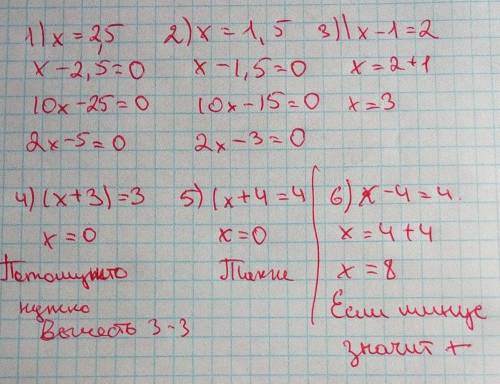 1) x = 2,5
x - 2,5 = 0
10x - 25 = 0
2x - 5 = 0
2) x = 1,5
x - 1,5 = 0
10x - 15 = 0
2x - 3 = 0
3) | x - 1 = 2
x = 2 + 1
x = 3
4) (x + 3) = 3
x = 0
Потому что
нужно
Вычесть 3 - 3
5) (x + 4 = 4
x = 0
Также
6) x - 4 = 4.
x = 4 + 4
x = 8
Если минус
значит +